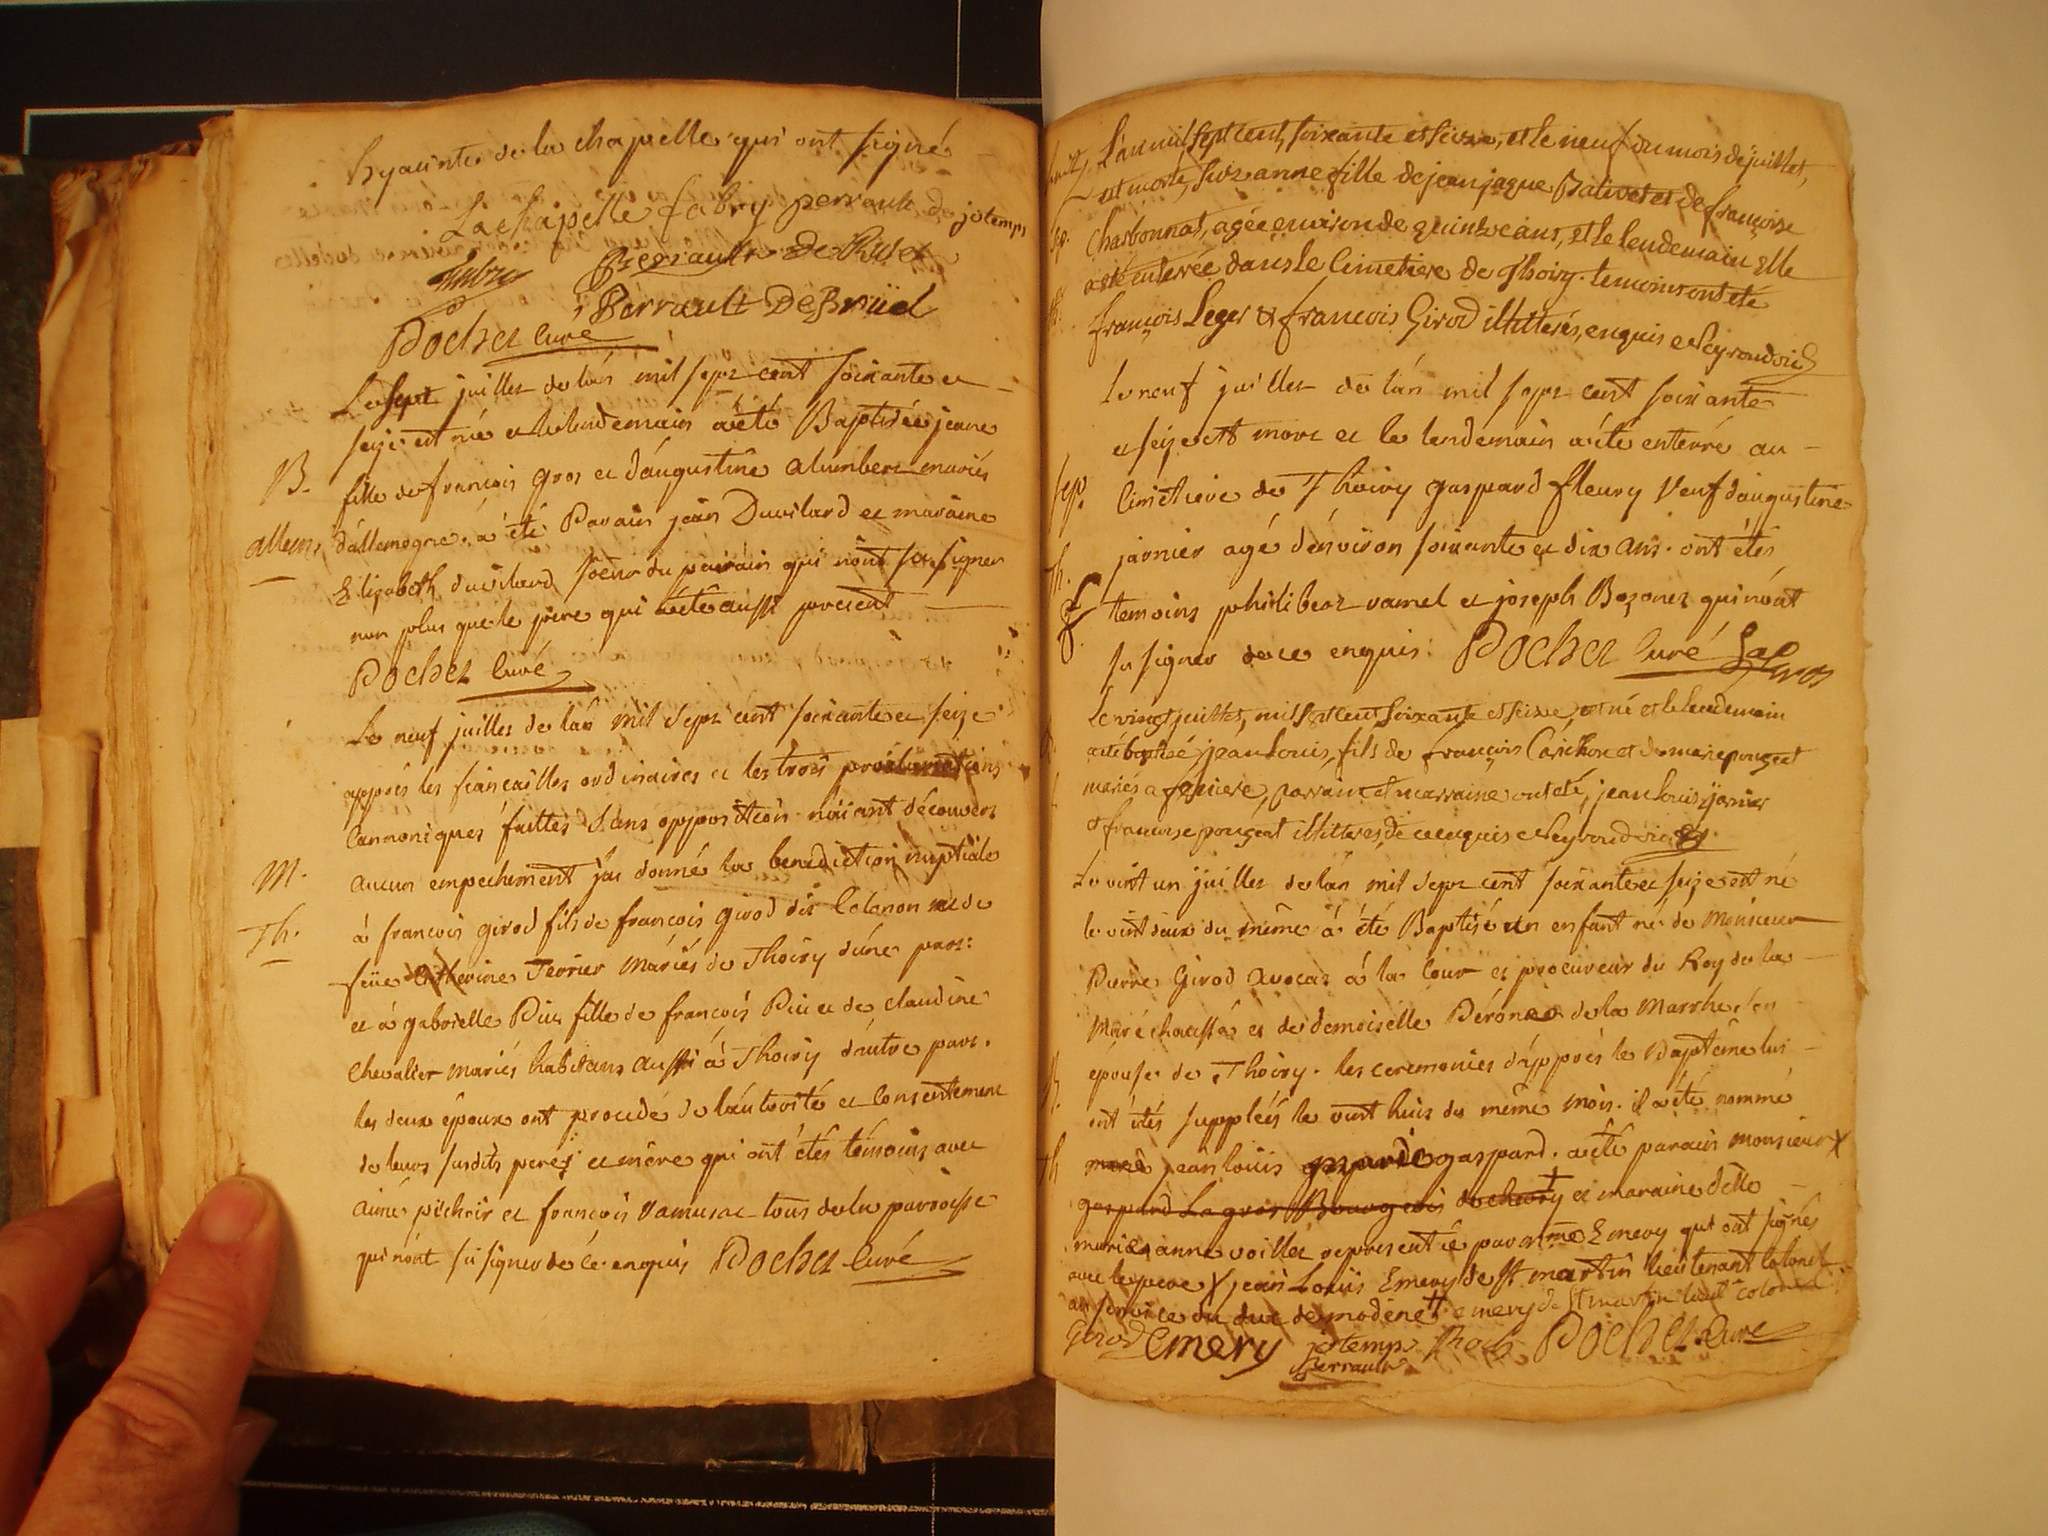 hyacinte de la chapelle qui ont signé
Lachapelle fabry perrault de jotemps
fabry Perrault de Ruet
Perrault De Brüel
Pochet Curé
Le sept juillet de lán mil sept cent soixante et
seize est née et le lendemain a été Baptisée jeane
B. fille de francois Gros et d'augustine alumbert mariés
allem. dállemogne. a été Parain jean Duvilard et maraine
Elizabeth duvilard soeur du parain qui n'ont su signer
non plus que le père qui a été aussi present
Pochet Curé
Le neuf juillet de lán mil sept cent soixante et seize
apprés les fiancailles ordinaires et les trois proclamations
Cannoniques faittes sans opposition n'aiant découvert
M. aucun empechement j'ai donné la benediction nuptiale
Th. á francois girod fils de francois girod dit Colonon et de
feüe Catherine Terrier Mariés de Thoiry d'úne part:
et á gabrielle Piu fille de francois Piu et de claudine
Chevalier mariés habitans aussi á Thoiry d'autre part.
les deux époux ont procedé de láutorité et Consentement
de leurs susdits peres et mère qui ont étés témoins avec
aimé pichoir et francois vamusat tous de la parroisse
qui n'ont sú signer de ce enquis Pochet Curé
L'an mil sept cent soixante et seize, et le neuf du mois de juillet,
est morte suzanne fille de jean jaque Balivet et de françoise
sep. Charbonnat, agée environ de quinze ans, et le lendemain elle
a été enterée dans le Cimetiere de Thoiry. temoins ont été
Th. françois Leger & francois Girod illiterés, enquis
Le neuf juillet de lán mil sept cent soixante
et seize est mort et le lendemain a été enterré au
sep. Cimetiere de Thoiry gaspard fleury Veuf d'augustine
jarnier agé d'environ soixante et dix ans. ont étés
Th. temoins philibert vamel et joseph Bozonet qui n'ont
su signer de ce enquis: Pochet Curé
Le vingt juillet, mil sept cent soixante et seize, est né et le lendemain
a été baptisé jean louis, fils de françois et de marie pongeat
mariés a feniere, parrain et marraine ont été, jean louis jarnier
& francoise pongeat illitterés, de ce enquis
Le vint un juillet de lán mil sept cent soixante et seize est né
le vint deux du même á été Baptisé un enfant né de Monsieur
Pierre Girod avocat á la Cour et procureur du Roy de la
Maréchaussé et de demoiselle Pérone de la Marche son
B. épouse de Thoiry. les ceremonies d'apprès le Baptême lui
ont étés suppléés le vint huit du même mois. il a été nommé
Th. jean louis gaspard. a été parain monsieur X
gaspard Lagros Bourgeois de chevry et maraine delle
marie anne voillet representé par mme Emery qui ont signés
avec le pere X jean Louis Emery de st martin lieutenant Colonel
au service du duc de modene emery de st martin lieut colonel
Girod Emery jotemps Pochet Curé
Perrault